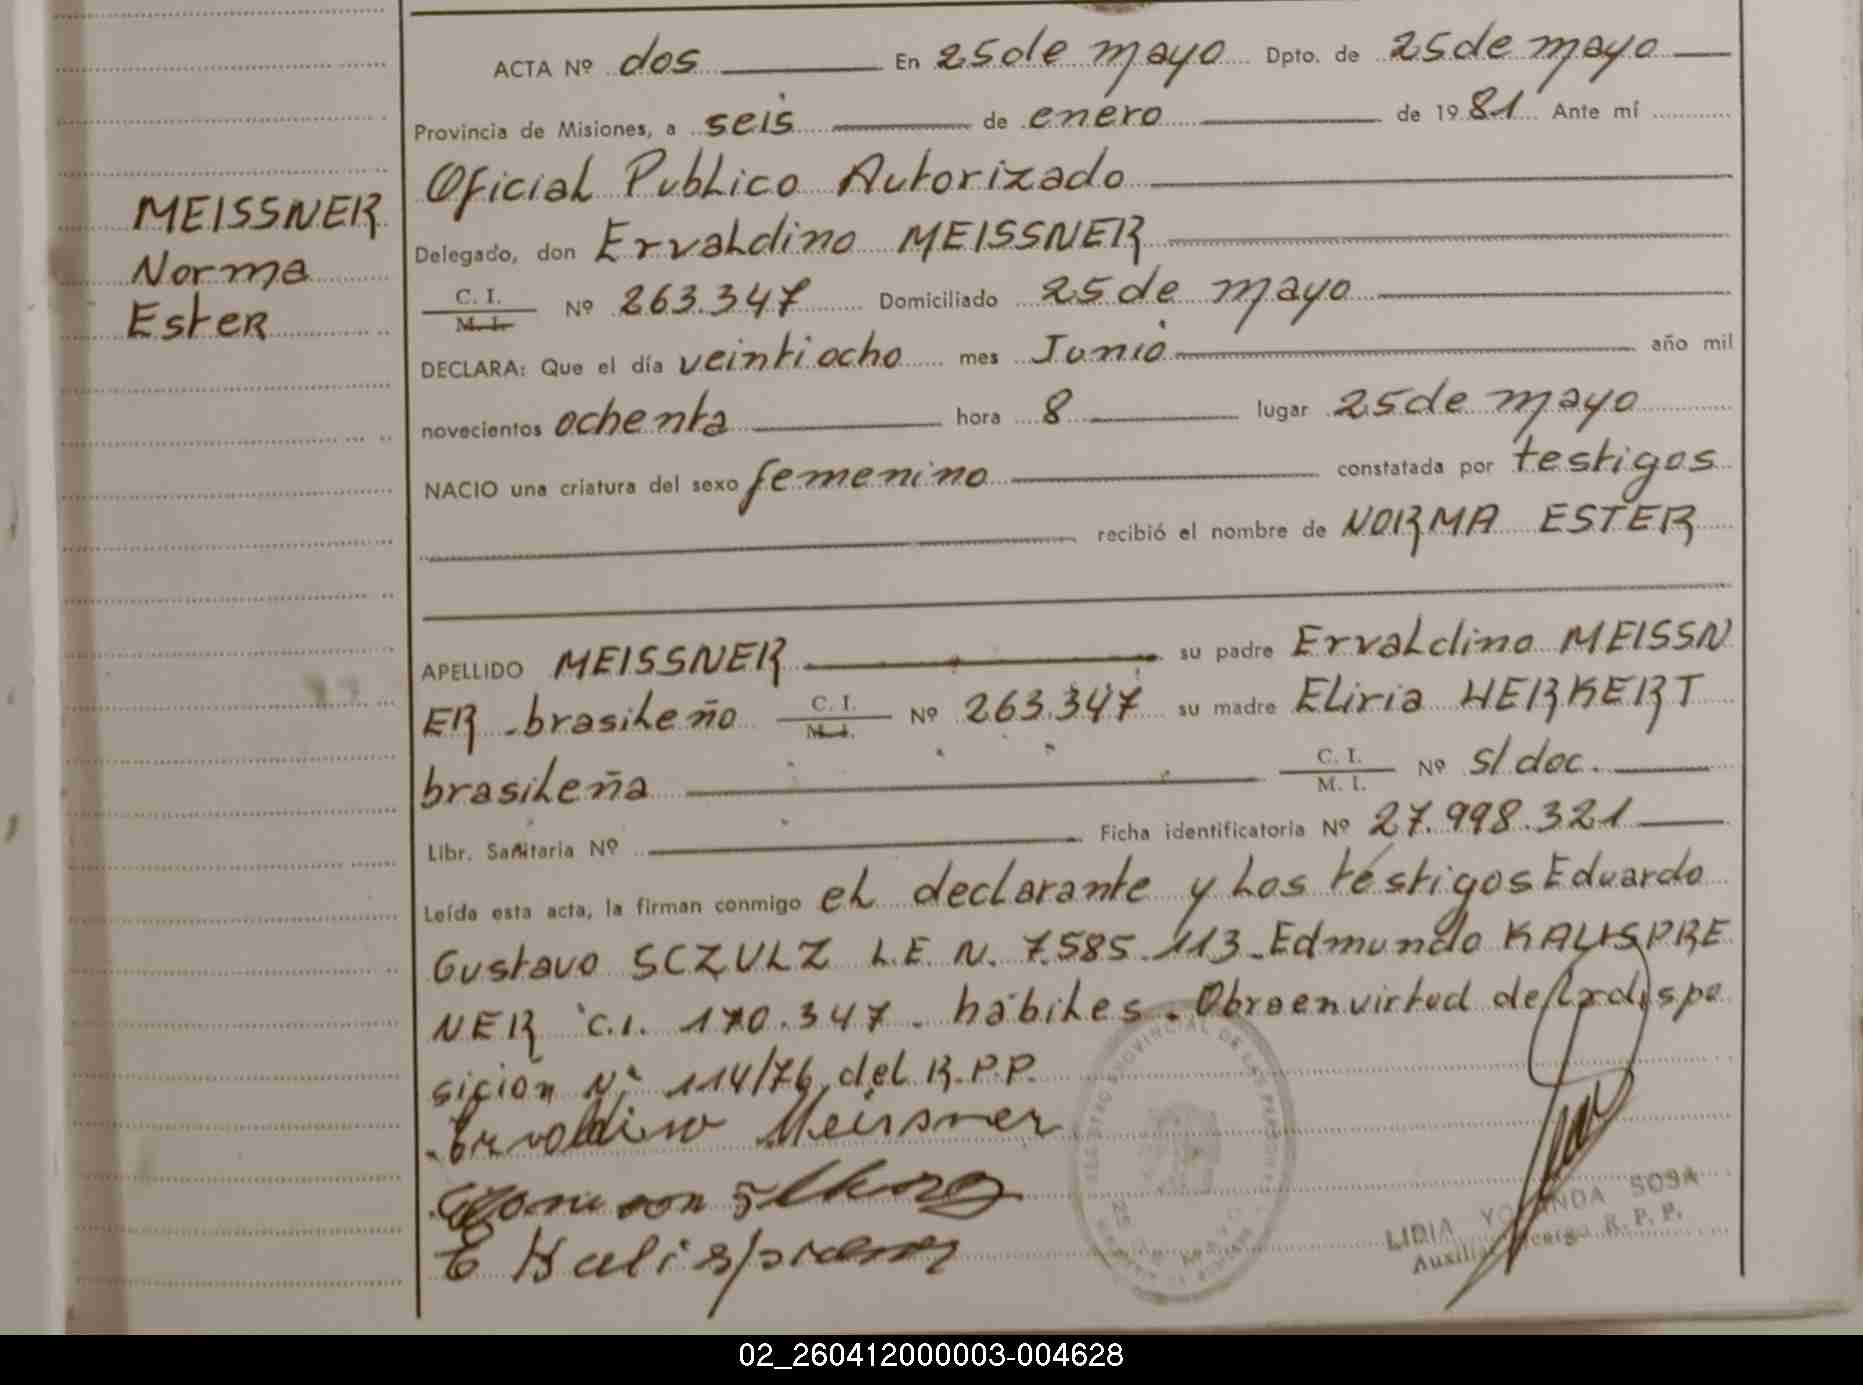 ACTA Nº dos En 25 de mayo Dpto. de 25 de mayo
Provincia de Misiones, a seis de enero de 1981 Ante mí
Oficial Publico Autorizado
MEISSNER
Norma
Ester
Delegado, don Ervaldino MEISSNER
C. I. M. I. Nº 263.347 Domiciliado 25 de mayo
DECLARA: Que el día veintiocho mes Junio año mil
novecientos ochenta hora 8 lugar 25 de mayo
NACIO una criatura del sexo femenino constatada por testigos
recibió el nombre de NORMA ESTER
APELLIDO MEISSNER su padre Ervaldino MEISSN
ER - brasileño C. I. M. I. Nº 263.347 su madre Eliria HERKERT
brasileña C. I. M. I. Nº s/doc.
Libr. Sanitaria Nº Ficha identificatoria Nº 27.998.321
Leída esta acta, la firman conmigo el declarante y los testigos Eduardo
Gustavo SCZULZ L.E. N. 7.585.113 - Edmundo KALISPRE
NER C.I. 170.347 - hábiles. Obra en virtud de la dispo
sicion Nº 114/76 del R.P.P.
Ervaldino Meissner
E Kalisprener
REGISTRO PROVINCIAL DE LAS PERSONAS
LIDIA YOLANDA SOSA
Auxiliar R. P. P.
02_260412000003-004628